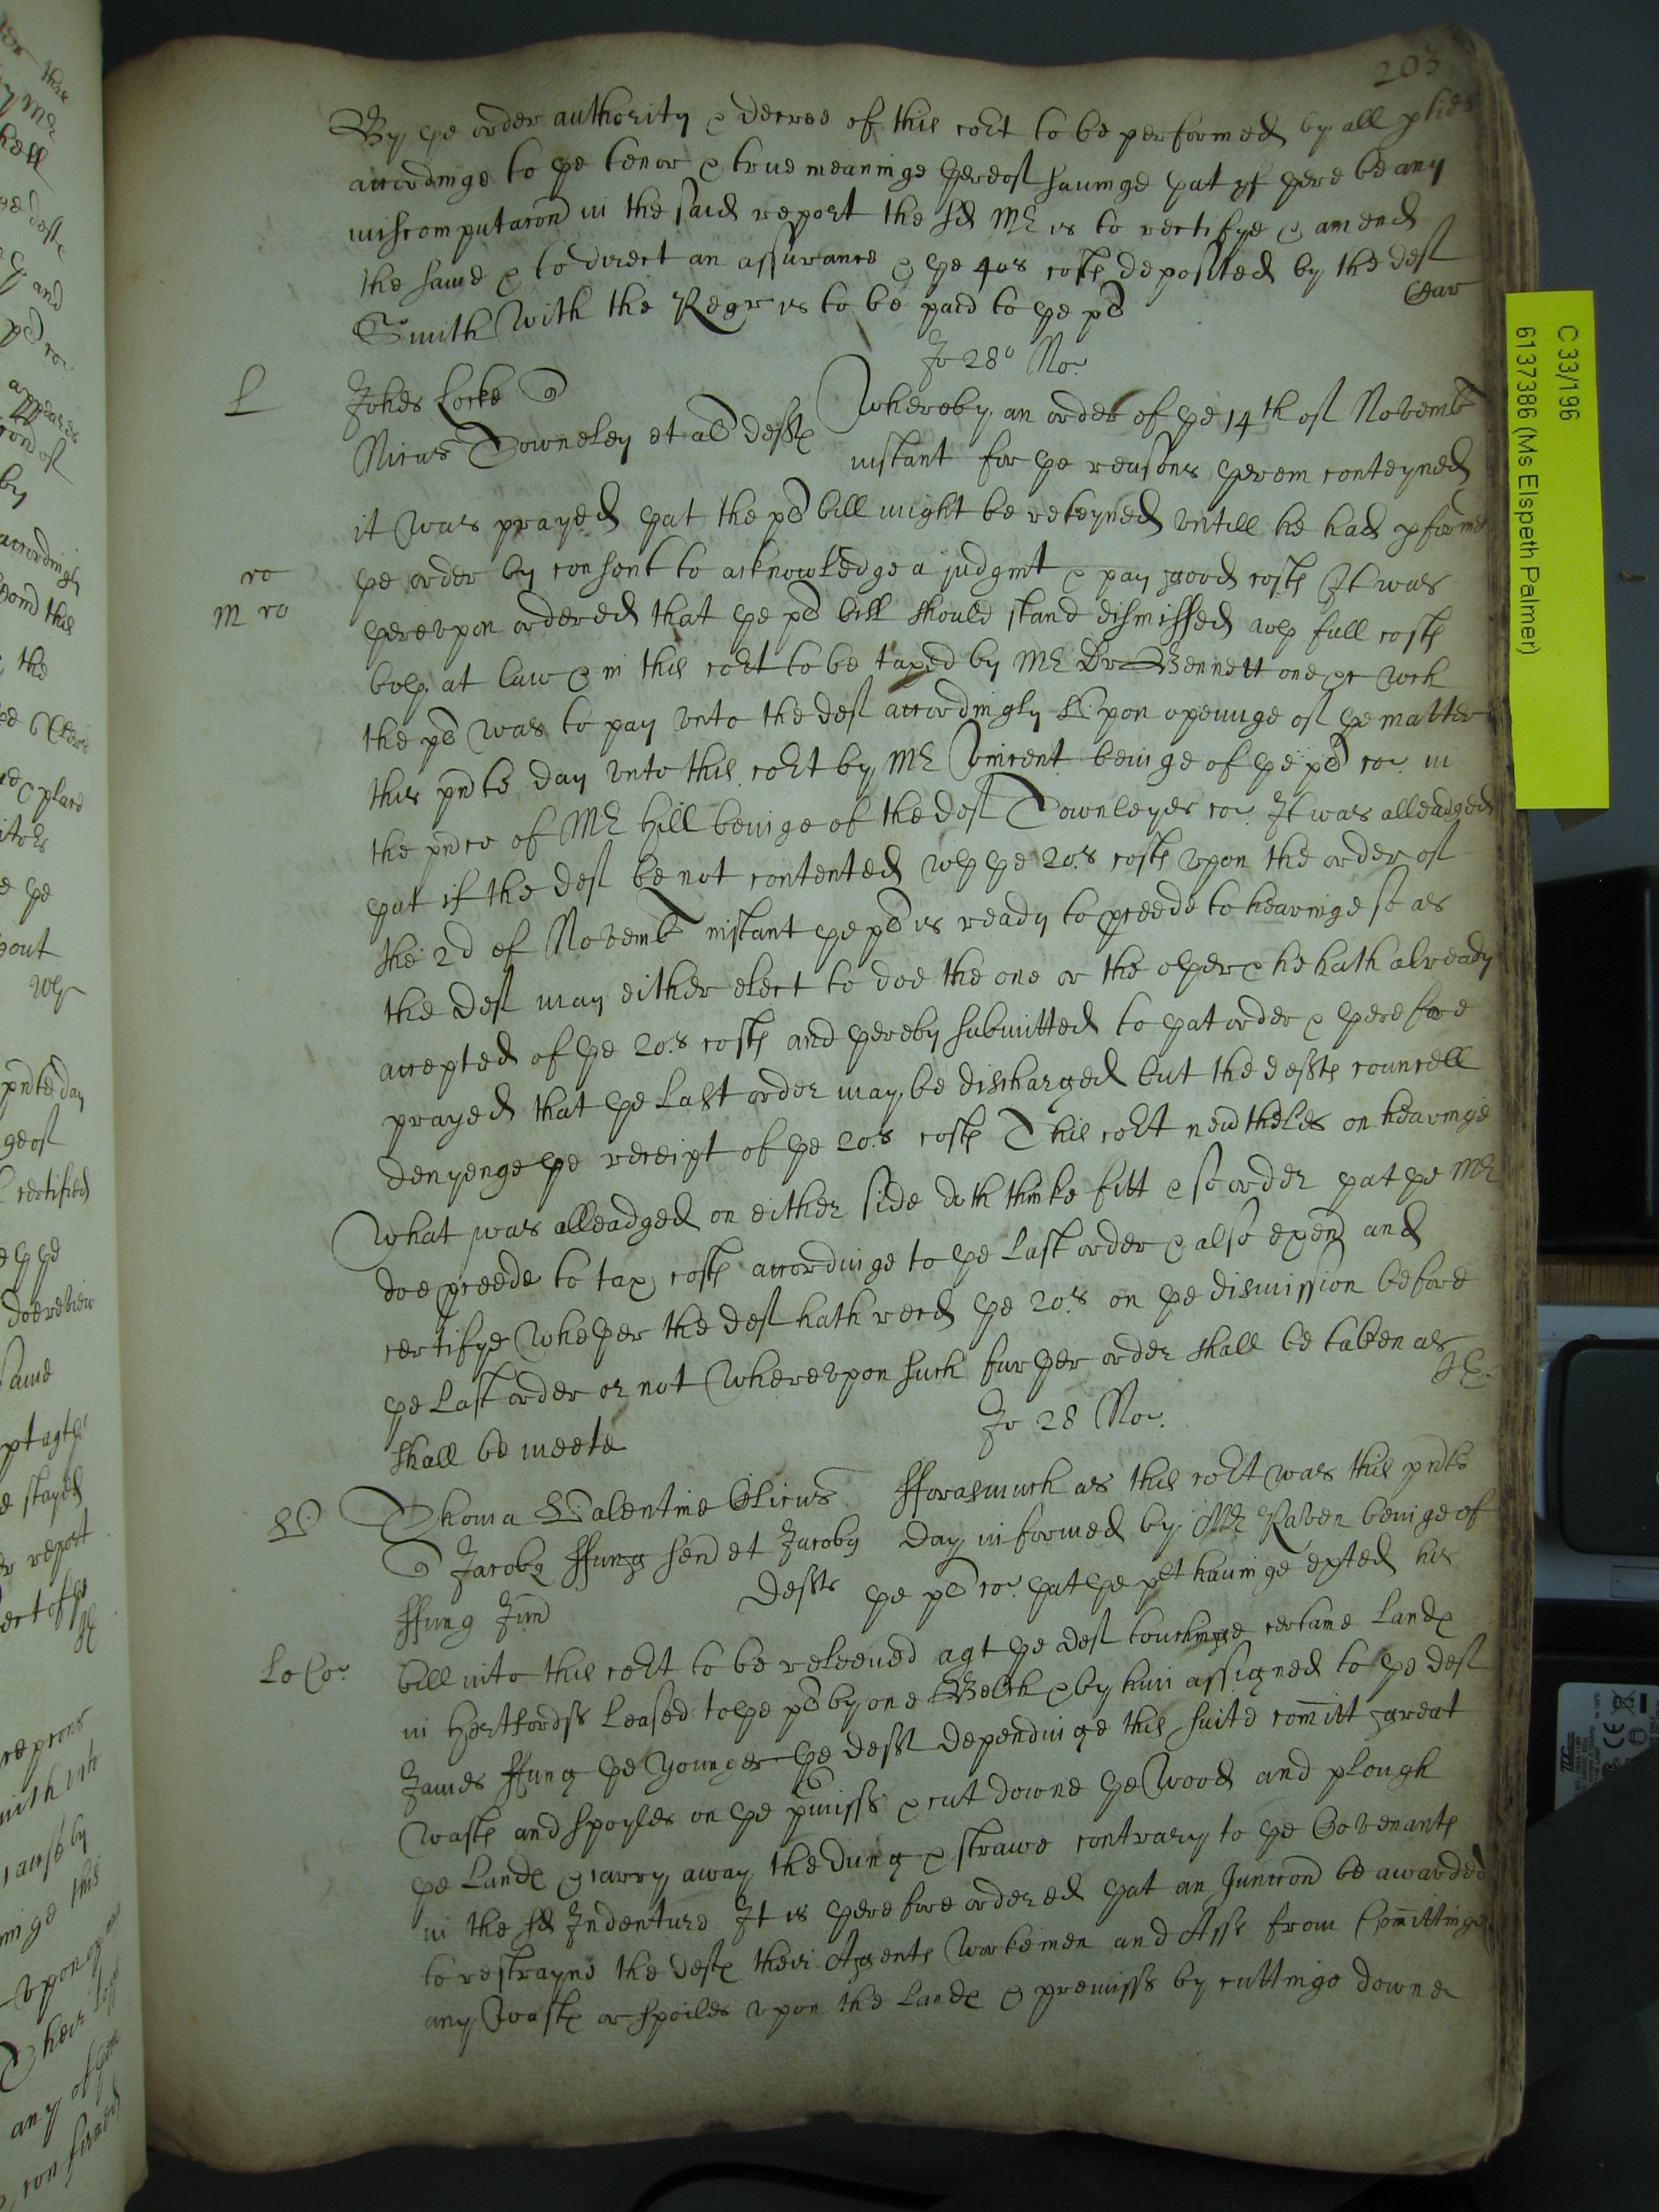 203
By ye order authority & decree of this coℓt to be performed by all pties
accordinge to ye tenor & true meaninge yereof saveinge yat yf yere be any
miscomputacon in the said report the sd Mr is to rectifye & amend
the same & to direct an assurance & ye 40s costs deposited by the deft
Smith with the Regr is to be paid to ye pt
Jo 28o No:
L
Johes Locke
Nicus Towneley et al defts
Whereby an order of ye 14th of Novemb
instant for ye reasons yerein conteyned
it was prayed yat the pt bill might be reteyned untill he had pformed
ye order by consent to acknowledge a judgmt & pay good costs It was
ro
m ro
yereupon ordered that ye pt bill should stand dismissed wth full costs
boy at law & in this cort to be taxed by Mr Dr Bennett one &c wch
the pt was to pay unto the deft accordingly Upon openinge of ye matter
this pnte day unto this cort by Mr Vincent beinge of ye pt co: in
the pnce of Mr Hill beinge of the deft Townleyes co: It was alleadged
yat if the deft be not contented wth ye 20s costs upon the order of
the 2d of Novemb instant ye pt is ready to pceede to hearinge so as
the deft may either elect to doe the one or the oyer & he hath already
accepted of ye 20s costs and yereby submitted to yat order & yerefore
prayed that ye last order may be discharged but the defts councell
denyenge ye receipt of ye 20s costs This cort nevtheles on hearinge
what was alleadged on either side doth thinke fitt & so order yat ye Mr
doe pceede to tax costs accordinge to ye last order & also exend and
certifye wheyer the deft hath recd ye 20s on ye dismission before
ye last order or not whereupon such furyer order shall be taken as
shall be meete
Jo 28 No:
V
Thoma Valentine Clicus
Jacoby ffung sen et Jacoby
ffung Jun
Defts
fforasmuch as this cort was this pnte
Day informed by Mr Raven beinge of
ye pt co: yat ye plt havinge exted his
Lo Co:
bill into this cort to be releeved agt ye deft touchinge certaine Lands
in Hertfordss leased to ye pt by one Welch & by him assigned to ye deft
James ffung ye younger ye defts dependinge this suite comitt great
wasts and spoyles on ye pmisss & cut downe ye wood and plough
ye Lands & carry away the dung & strawe contrary to ye Covenants
in the sd Indenture It is yerefore ordered yat an Juncon be awarded
to restrayne the defts their Agents workemen and Asss from Comittinge
any wasts or spoiles upon the Lands & premisss by cuttinge downe
C 33/196
6137386 (Ms Elspeth Palmer)